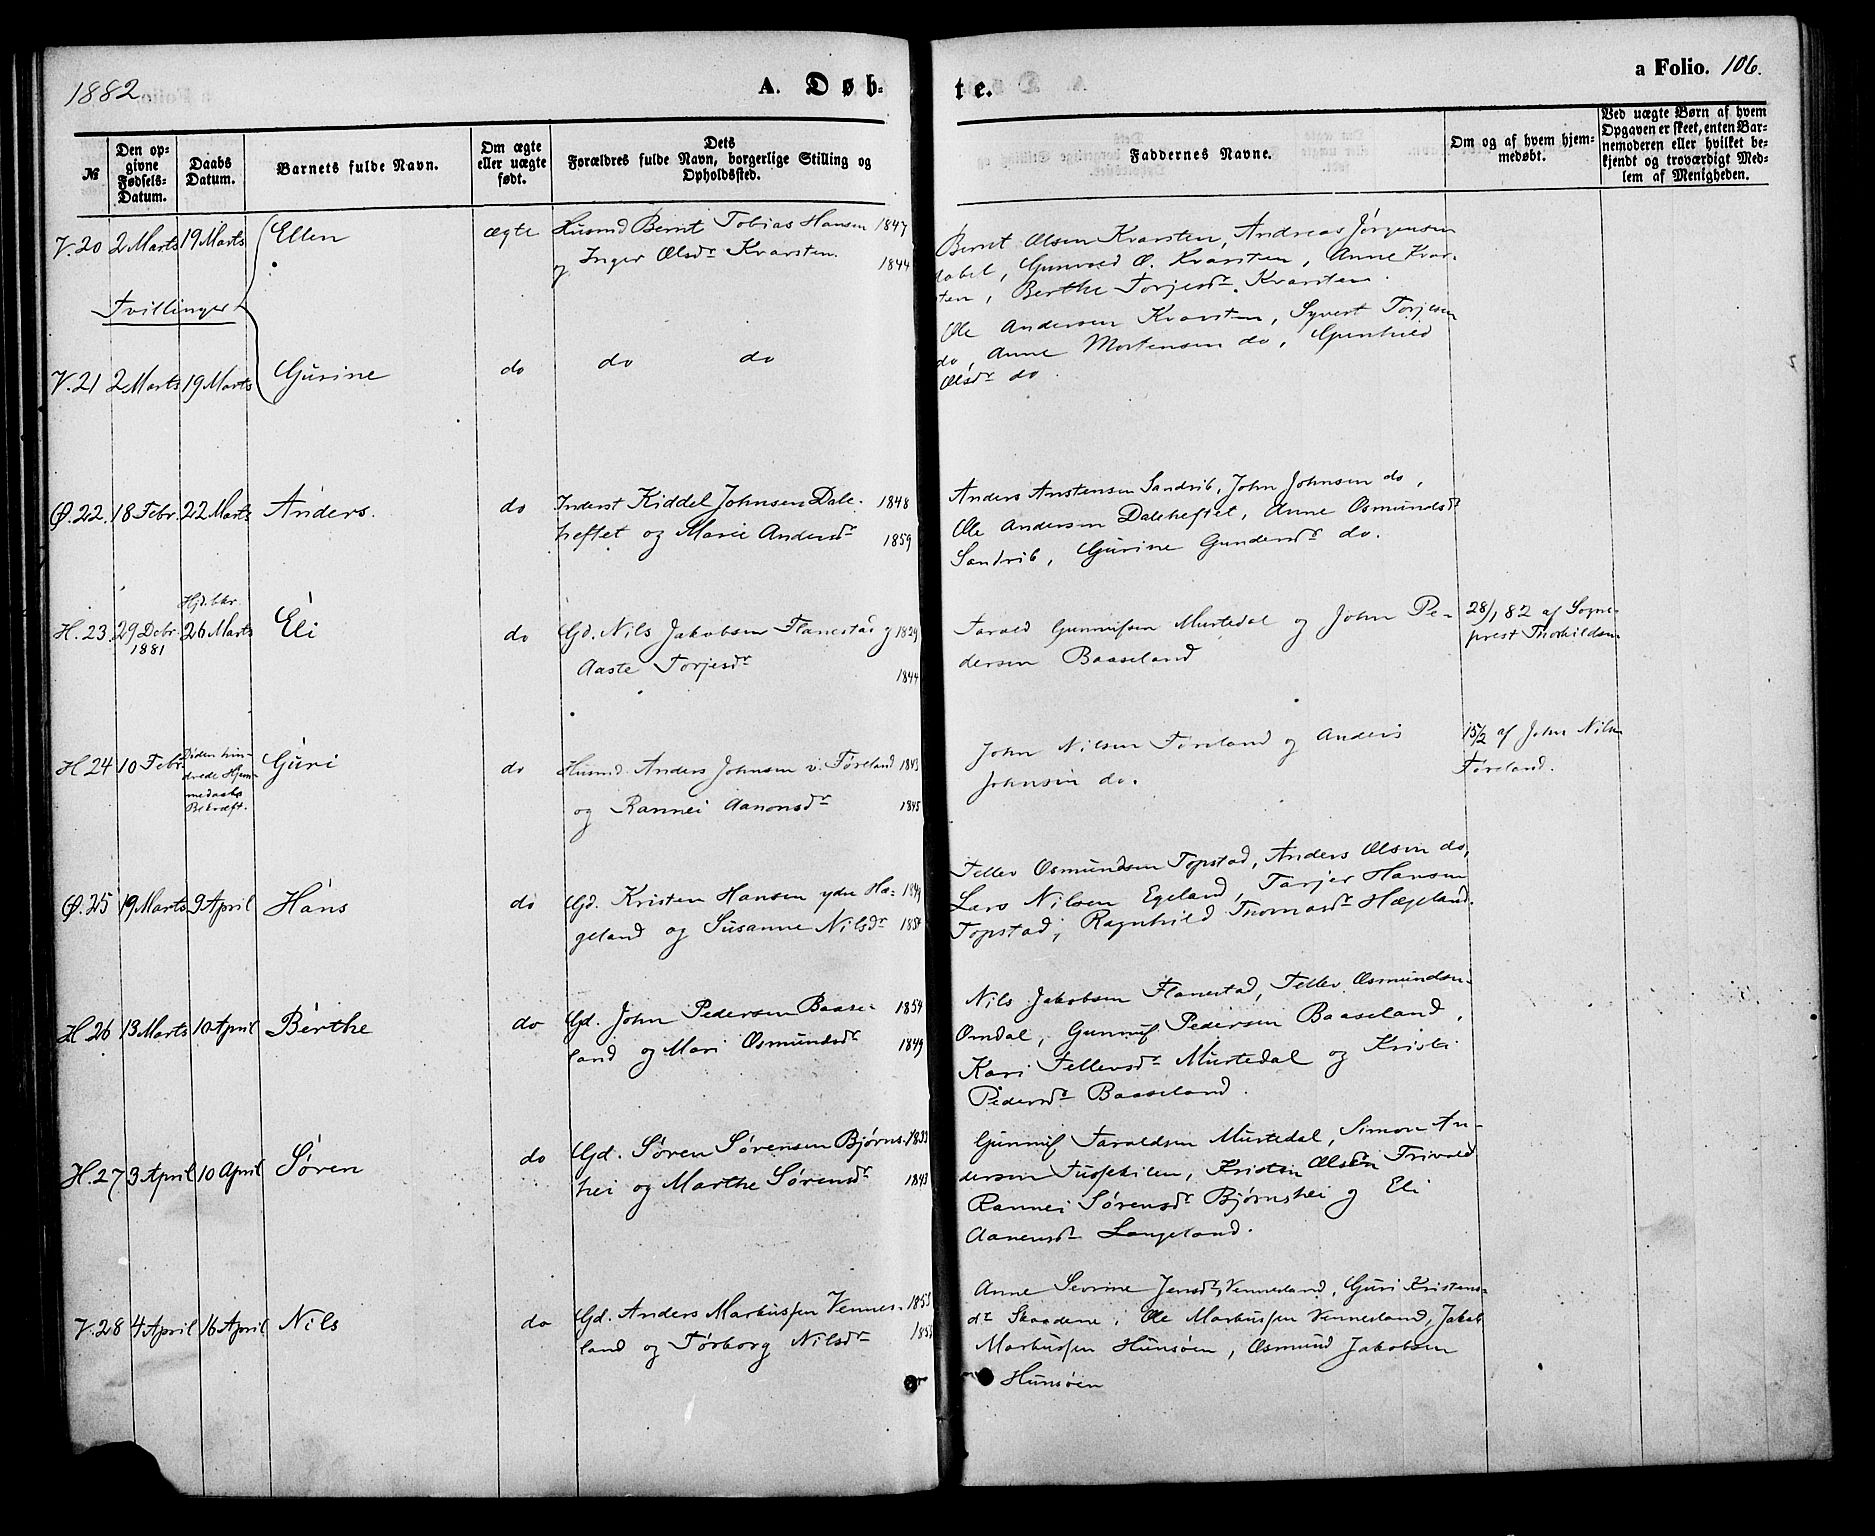 1882
A. Døb-
te.
a Folio. 106.
№
Den op-
givne
Fødsels-
Datum.
Daabs
Datum.
Barnets fulde Navn.
Om ægte
eller uægte
født.
Dets
Forældres fulde Navn, borgerlige Stilling og
Opholdssted.
Faddernes Navne.
Om og af hvem hjem-
medøbt.
Ved uægte Børn af hvem
Opgaven er skeet, enten Bar-
nemoderen eller hvilket be-
kjendt og troværdigt Med-
lem af Menigheden.
V. 20 2 Marts 19 Marts Ellen ægte Husmd Bernt Tobias Hansen 1847
og Inger Olsdr Kvarsten. 1844
Bernt Olsen Kvarsten, Andreas Jørgensen
Gunvald O. Kvarsten, Anne Kvar-
sten, Berthe Torjesdr. Kvarsten.
Tvillinger
V. 21 2 Marts 19 Marts Gurine do do do
Ole Andersen Kvarsten, Syvert Torjesen
do, Anne Mortensen do, Gunhild
Olsdr do.
Ø. 22. 18 Febr. 22 Marts Anders. do Inderst Kiddel Johnsen Dale- 1848
heftet og Marie Andersdr 1859
Anders Anstensen Sandrib, John Johnsen do,
Ole Andersen Daleheftet, Anne Osmundsdr
Sandrib, Gurine Gundersdr do.
Hjd. bkr.
H. 23. 29 Debr. 26 Marts Eli do Gd. Nils Jakobsen Flanestad og 1829
1881
Aaste Torjesdr 1844
Tarald Gunnufsen Murtedal og John Pe-
dersen Baaseland
28/1 82 af Sogne-
prest Thorkildsen
H. 24 10 Febr. Guri do Husmd. Anders Johnsen v. Føreland 1843
Døden hin-
drede Hjem-
medaabs
Bekræft.
og Rannei Aanonsdr 1845
John Nilsen Føreland og Anders
Johnsen do.
15/2 af John Nilsen
Føreland.
Ø. 25 19 Marts 9 April Hans do Gd. Kristen Hansen ydre Hæ-
geland og Susanne Nilsdr
Tellev Osmundsen Topstad, Anders Olsen do,
Lars Nilsen Egeland, Tarjer Hansen
Topstad, Ragnhild Thomasdr Hægeland.
H. 26 13 Marts 10 April Berthe do Gd. John Pedersen Baase- 1854
land og Mari Osmundsdr 1849
Nils Jakobsen Flanestad, Tellev Osmundsen
Omdal, Gunnuf Pedersen Baaseland,
Kari Tellevsdr Murtedal og Kristi
Pedersdr Baaseland.
H. 27 3 April 10 April Søren do Gd. Søren Sørensen Bjørns- 1833
hei og Marthe Sørensdr 1843
Gunnuf Taraldsen Murtedal, Simon An-
dersen Tusfekilen, Kristen Olsen Trivold
Rannei Sørensdr Bjørnshei og Eli
Aanensdr Langeland.
V. 28 4 April 16 April Nils do Gd. Anders Markussen Vennes-
land og Torborg Nilsdr
Anne Sevrine Jensdr Vennesland, Guri Kristens-
dr Skaadene, Ole Markussen Vennesland, Jakob
Markussen Hunsøen, Osmund Jakobsen
Hunsøen